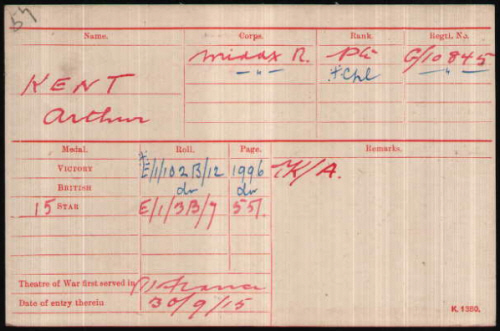 57
Name. Corps. Rank. Regtl. No.
KENT Middx R. Pte G/10845
Arthur — " — + Cpl — " —
Medal. Roll. Page. Remarks.
VICTORY E/1/102B/12 1996 K/A.
BRITISH do do
15 STAR E/1/3B/7 551.
Theatre of War first served in (1) France
Date of entry therein 30/9/15
K. 1380.